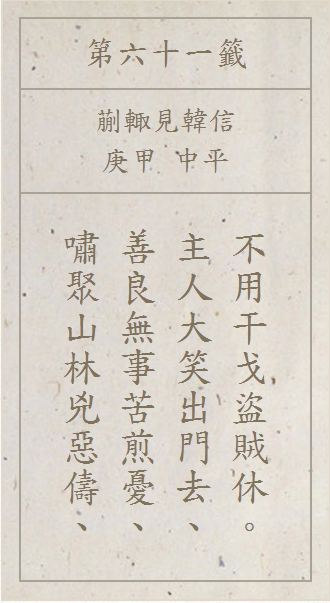 第六十一籤
蒯輙見韓信
庚甲 中平
嘯聚山林兇惡儔、
善良無事苦煎憂、
主人大笑出門去、
不用干戈盜賊休。